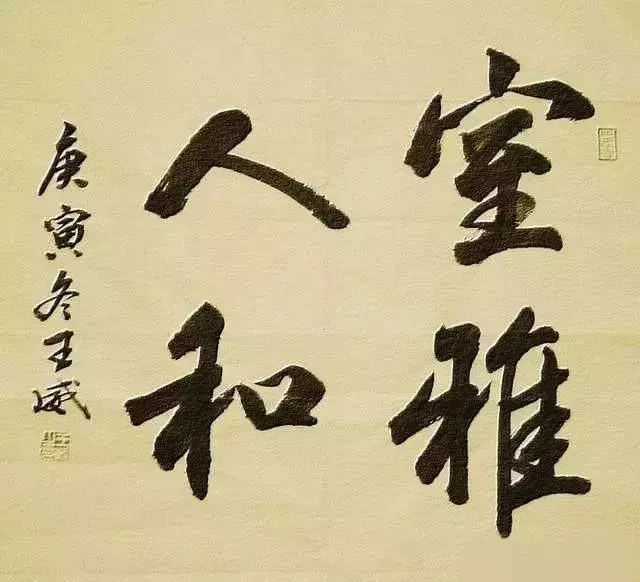 室雅
人和
庚寅冬王威